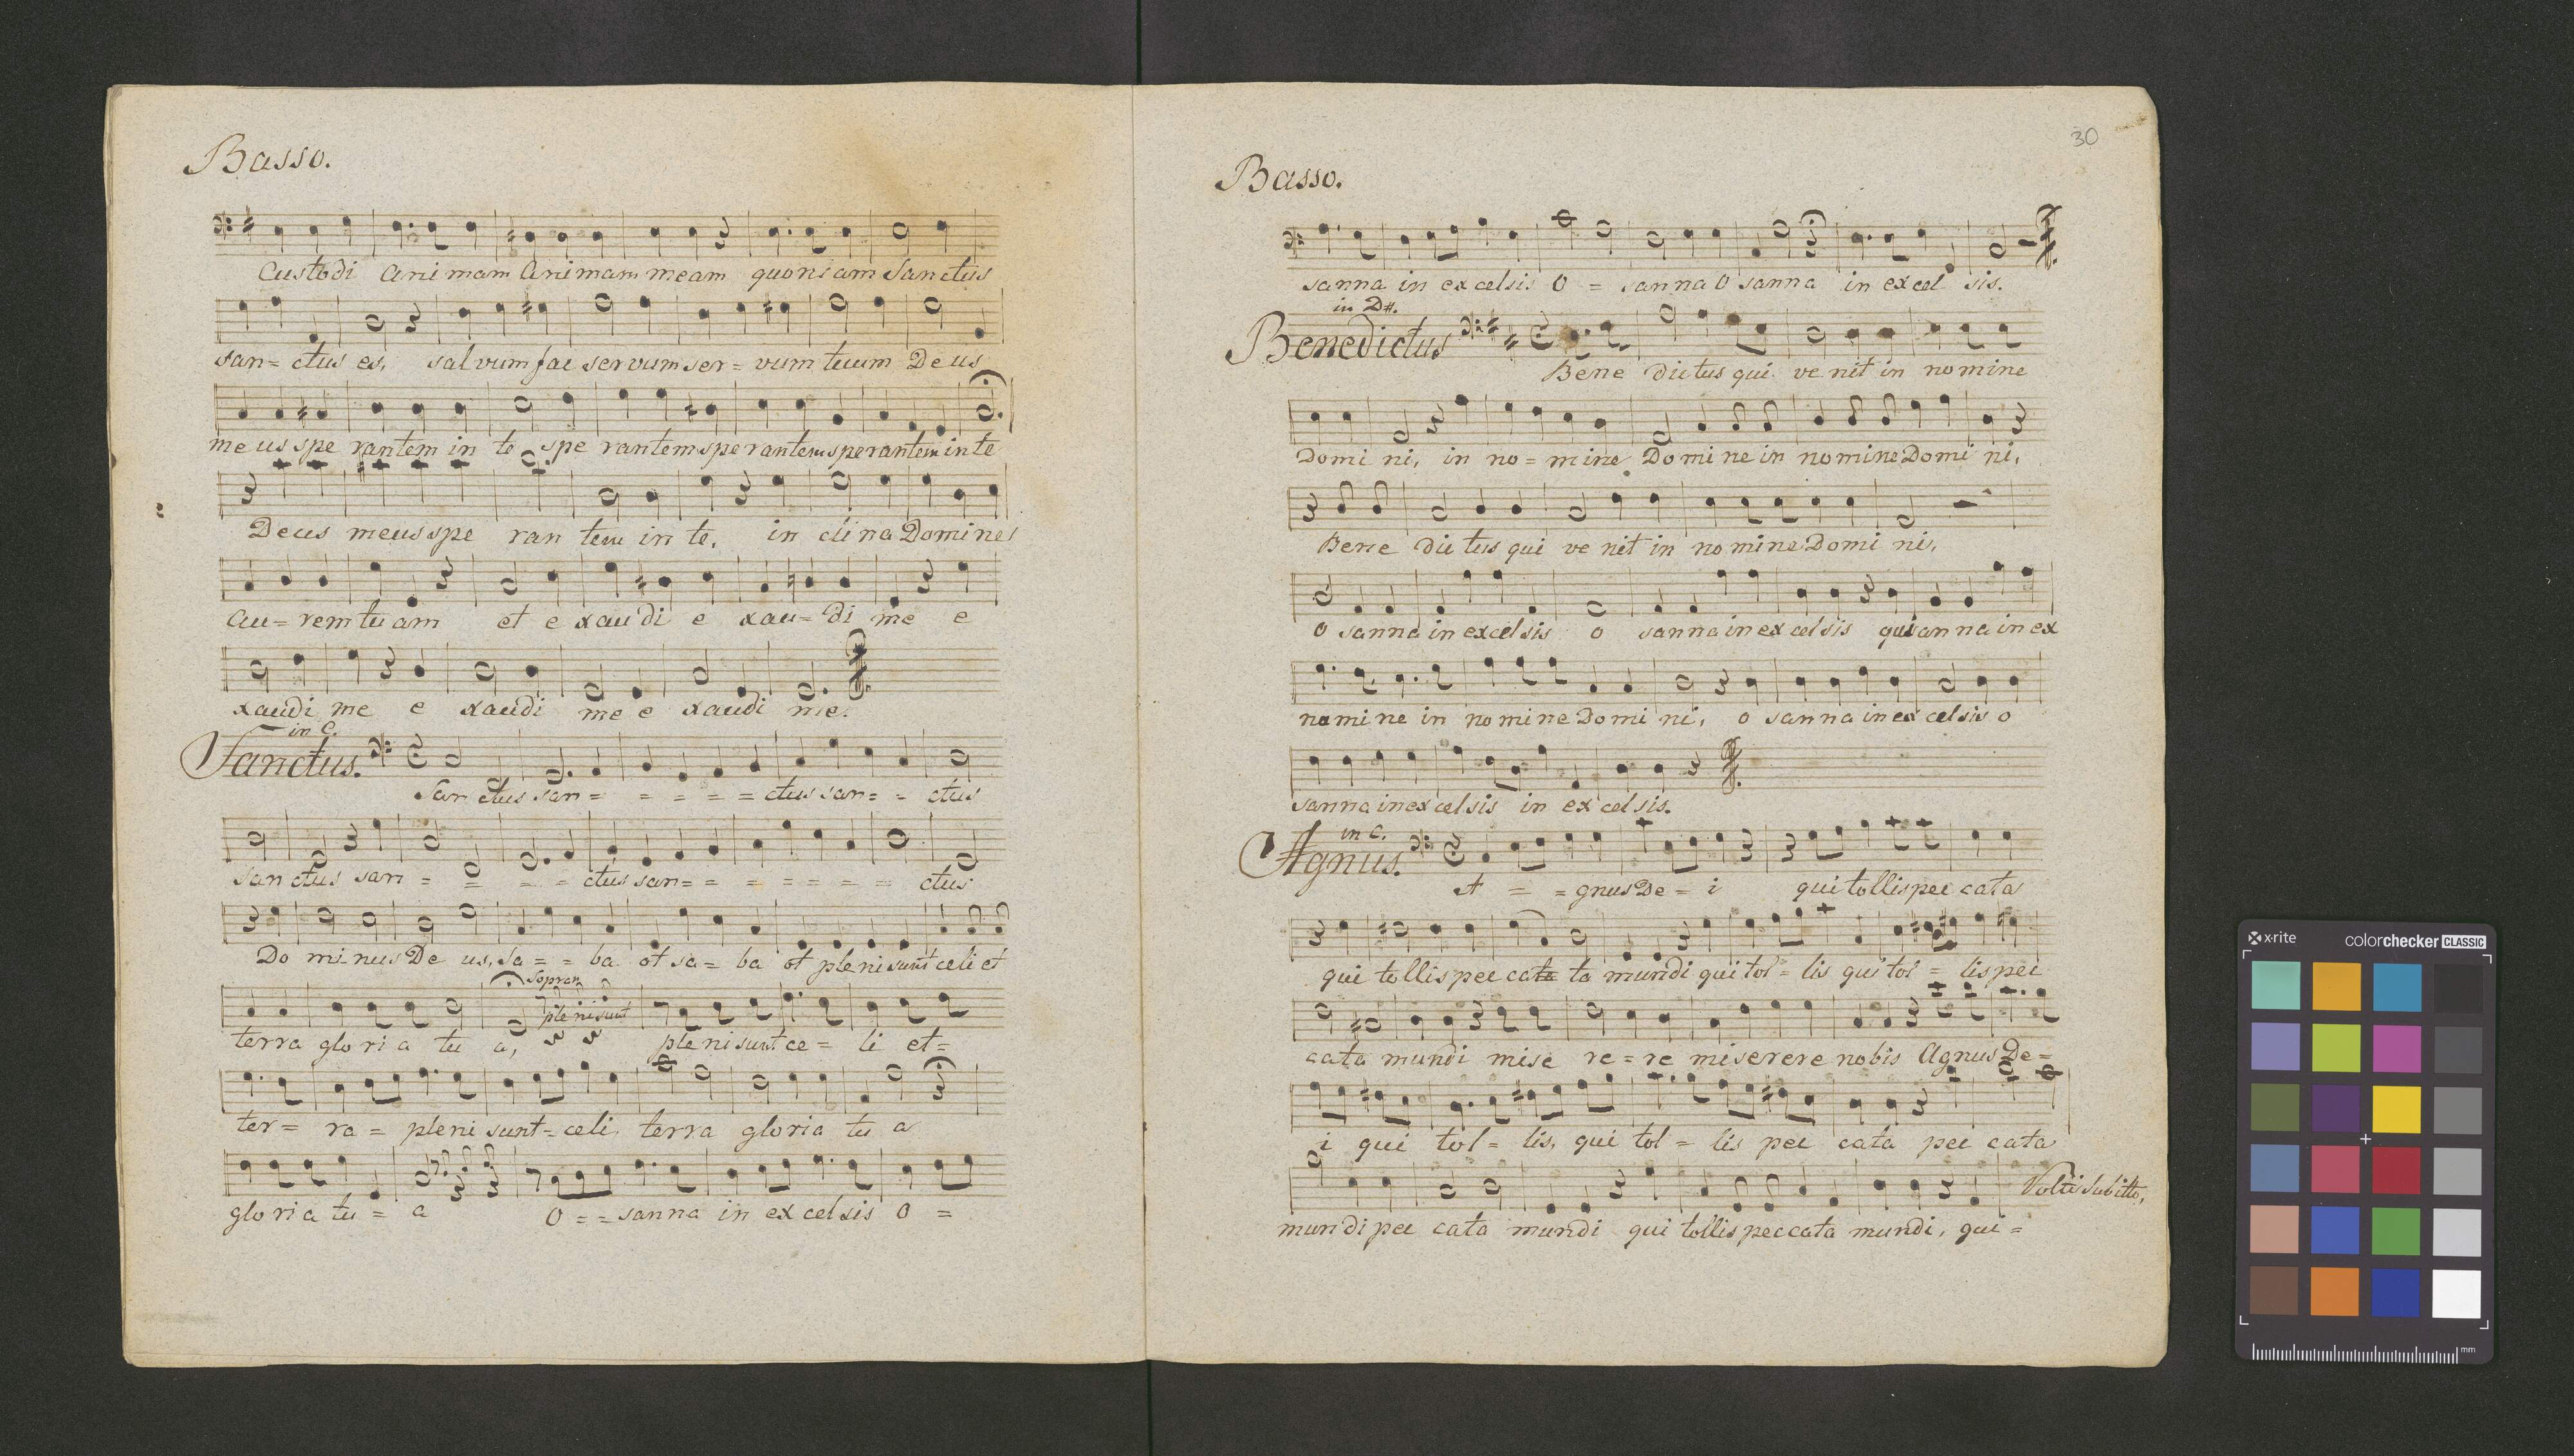 Basso.
Custodi Animam Animam meam quoniam Sanctus
san= ctus es, salvum fac servum ser= vum tuum Deus
me us spe rantem in te spe rantem sperantem sperantem in te
Deus meus spe ran tem in te, in cli na Domine
Au= rem tu am et e xau di e xau= di me e
xaudi me e xaudi me e xaudi me.
in C.
Sanctus.
San ctus san= = = = = ctus san= = ctus
San ctus san = = = = ctus san= = = = = = = ctus
Do mi nus De us, sa= = ba ot sa= ba ot pleni sunt celi et
Sopran
pleni sunt
terra glo ri a tu a, pleni sunt ce= li et=
ter= ra= pleni sunt= celi terra gloria tu a
glo ri a tu = a O = = sanna in ex cel sis O =
30
Basso.
sanna in ex celsis O = sanna O sanna in ex cel sis.
in D#.
Benedictus
Bene dictus qui ve nit in no mine
Domi ni, in no= mine Domi ne in nomine Domi ni,
Bene dic tus qui ve nit in no mine Domi ni,
O sanna in excelsis o sanna in ex celsis sanna in ex
nomi ne in no mi ne Domi ni, o sanna in ex celsis o
sanna in ex cel sis in ex cel sis.
in C.
Agnus.
A = = gnus De= i qui tollis pec cata
qui tollis pec ca ta mundi qui tol= lis qui tol= lis pec
cata mundi mise re= re miserere nobis Agnus De=
i qui tol= lis, qui tol= lis pec cata pec cata
Volti Subitto,
mundi pec cata mundi qui tollis peccata mundi, qui=
x·rite
colorchecker CLASSIC
mm